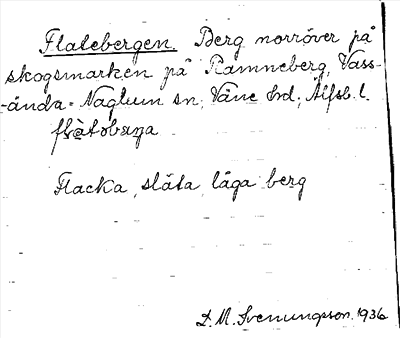 Flatebergen. Berg norröver på
skogsmarken på Ramneberg, Vass-
-ända. Naglum sn, Väne hd, Älfsb. l.
Flacka, släta, låga berg
D. M. Svenungsson. 1936